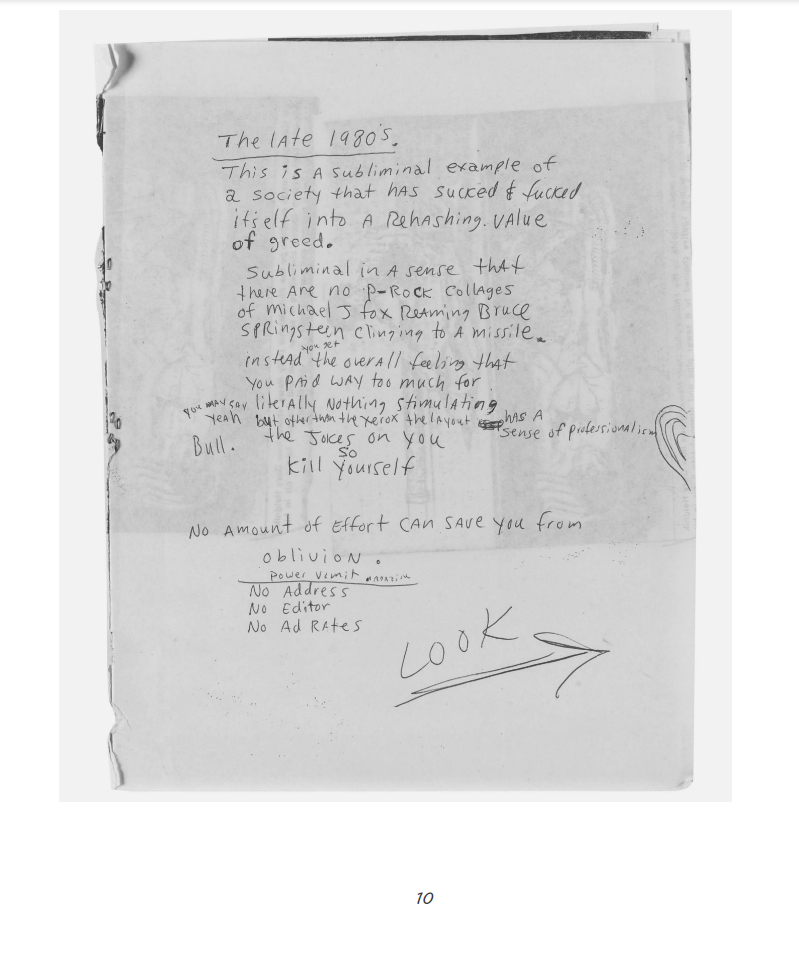 The lAte 1980's.
This is A subliminal example of
a society that hAs sucked & fucked
itself into A RehAshing. vAlue
of greed.
Subliminal in A sense thAt
there Are no P-RocK Collages
of michael J fox ReAming Bruce
SPRingsteen clinging to A missile.
you get
insteAd the overAll feeling thAt
you pAid wAy too much for
literAlly Nothing stimulAting
you mAy sAy
yeAh but other than the xerox the lAyout hAs A
sense of professionalism
Bull. the Jokes on you
so
kill yourself
No Amount of Effort CAn SAve you from
oblivion.
Power Vomit magazine
No Address
No Editor
No Ad RAtes
LOOK
10